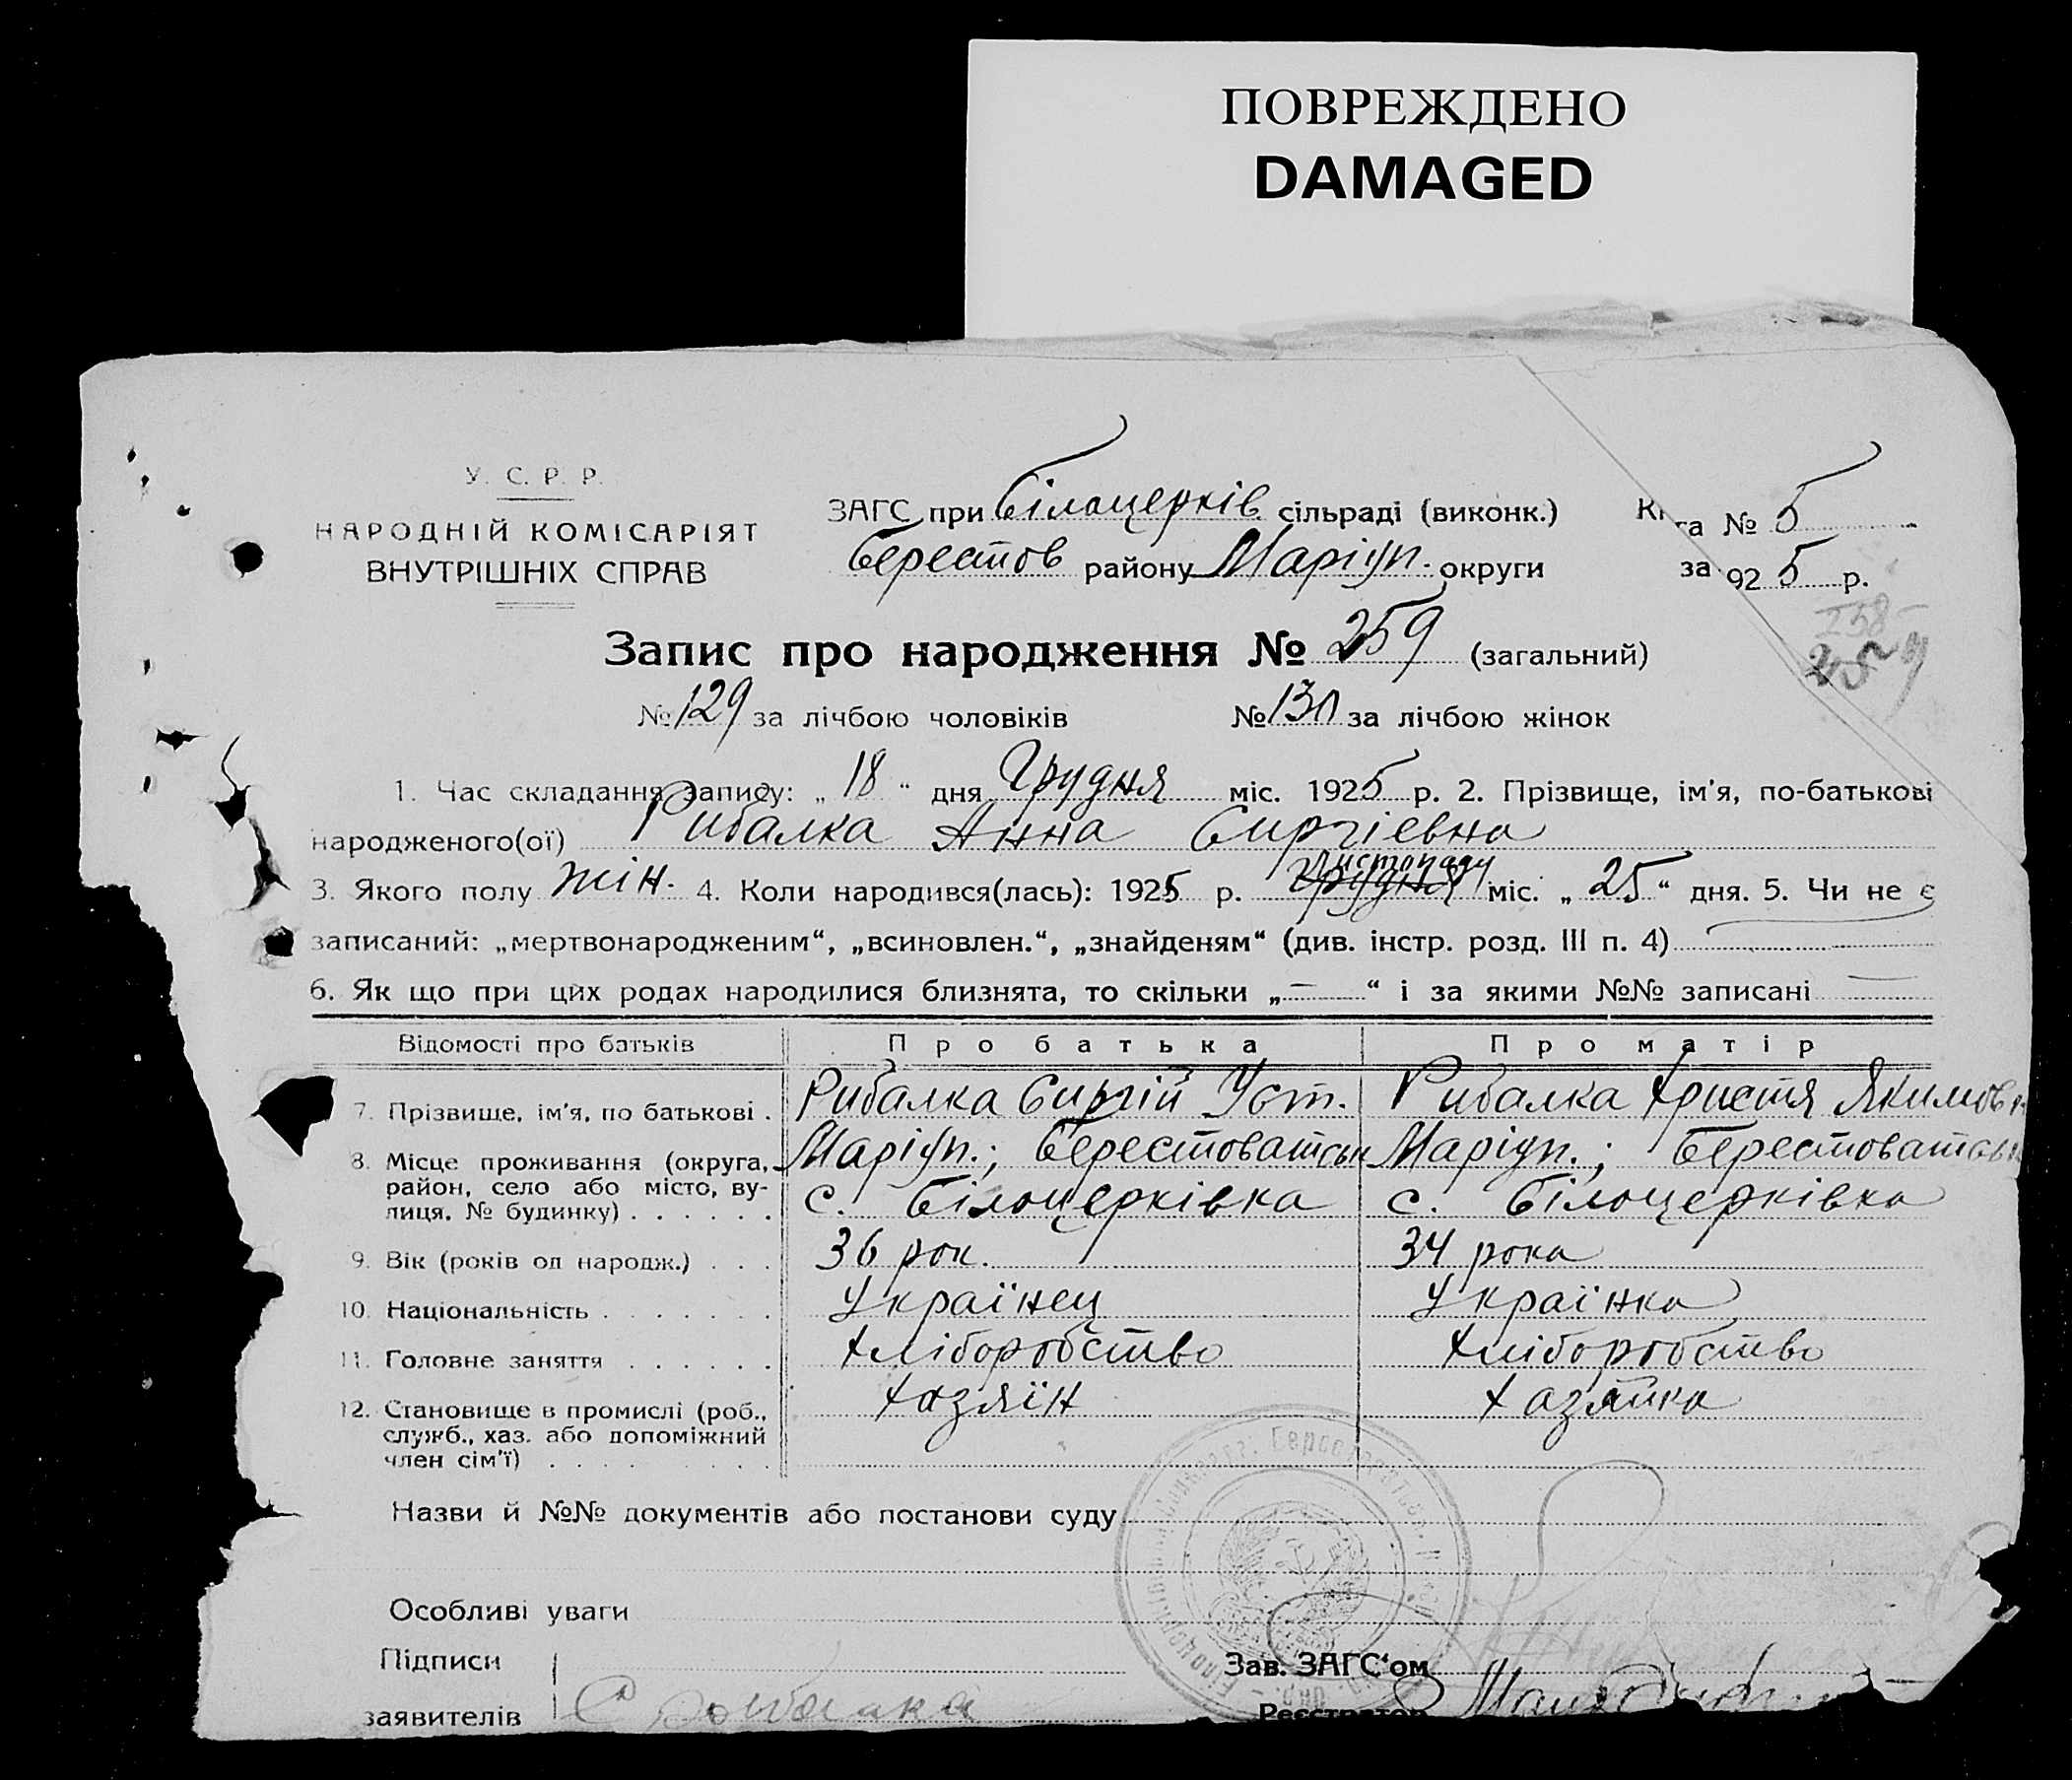 ПОВРЕЖДЕНО
DAMAGED
У. С. Р. Р.
НАРОДНІЙ КОМІСАРІЯТ
ВНУТРІШНІХ СПРАВ
ЗАГС при Білоцерків. сільраді (виконк.)
Берестов району Маріуп. округи
га № 5
за 925 р.
258
259
Запис про народження № 259 (загальний)
№ 129 за лічбою чоловіків № 130 за лічбою жінок
1. Час складання запису: „18“ дня Грудня міс. 1925 р. 2. Прізвище, ім'я, по-батькові
народженого(ої) Рибалка Анна Сиргіевна
листопаду
3. Якого полу жін. 4. Коли народився(лась): 1925 р. грудня міс. „25“ дня. 5. Чи не є
записаний: „мертвонародженим“, „всиновлен.“, „знайденям“ (див. інстр. розд. III п. 4)
6. Як що при цих родах народилися близнята, то скільки „—“ і за якими №№ записані —
Відомості про батьків Про батька Про матір
7. Прізвище, ім'я, по батькові . Рибалка Сиргій Уст. Рибалка Христя Якимов
8. Місце проживання (округа, Маріуп.; Берестоватськ Маріуп.; Берестоватськ
район, село або місто, ву- с. Білоцерківка с. Білоцерківка
лиця, № будинку) . . . . . .
9. Вік (років од народж.) . . . 36 рок. 34 рока
10. Національність . . . . . . . Українец Українка
11. Головне заняття . . . . . . Хліборобство Хліборобство
12. Становище в промислі (роб., Хазяїн Хазяйка
служб., хаз. або допоміжний
член сім'ї) . . . . . . . . .
Назви й №№ документів або постанови суду
Особливі уваги
Підписи Зав. ЗАГС'ом
заявителів С Рыбалка Реєстратор